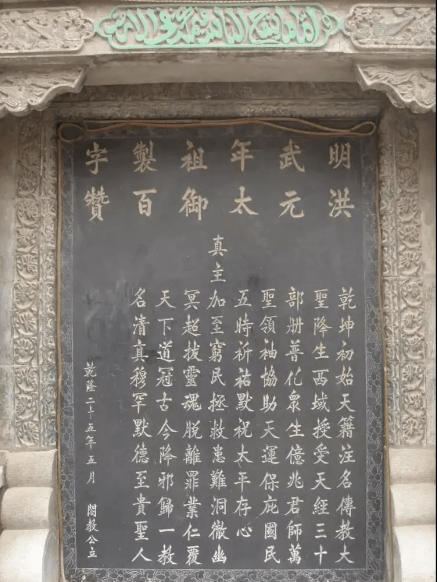 明洪
武元
年太
祖御
製百
字贊
乾坤初始天籍注名傳教大
聖降生西域授受天經三十
部册普化衆生億兆君師萬
聖領袖協助天運保庇國民
五時祈祐默祝太平存心
真主加至窮民拯救患難洞徹幽
冥超拔靈魂脱離罪業仁覆
天下道冠古今降邪歸一教
名清真穆罕默德至貴聖人
乾隆二十五年五月 閤教公立